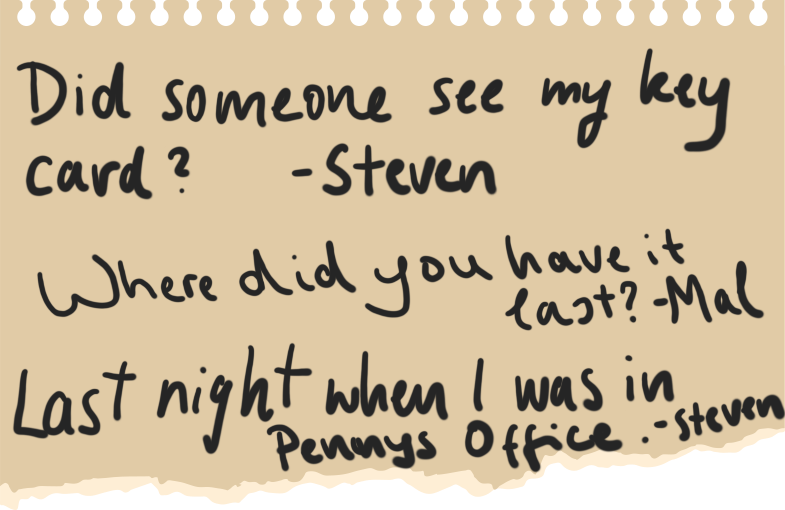 Did someone see my key
card? -Steven
Where did you have it
last? -Mal
Last night when I was in
Pennys Office. -Steven